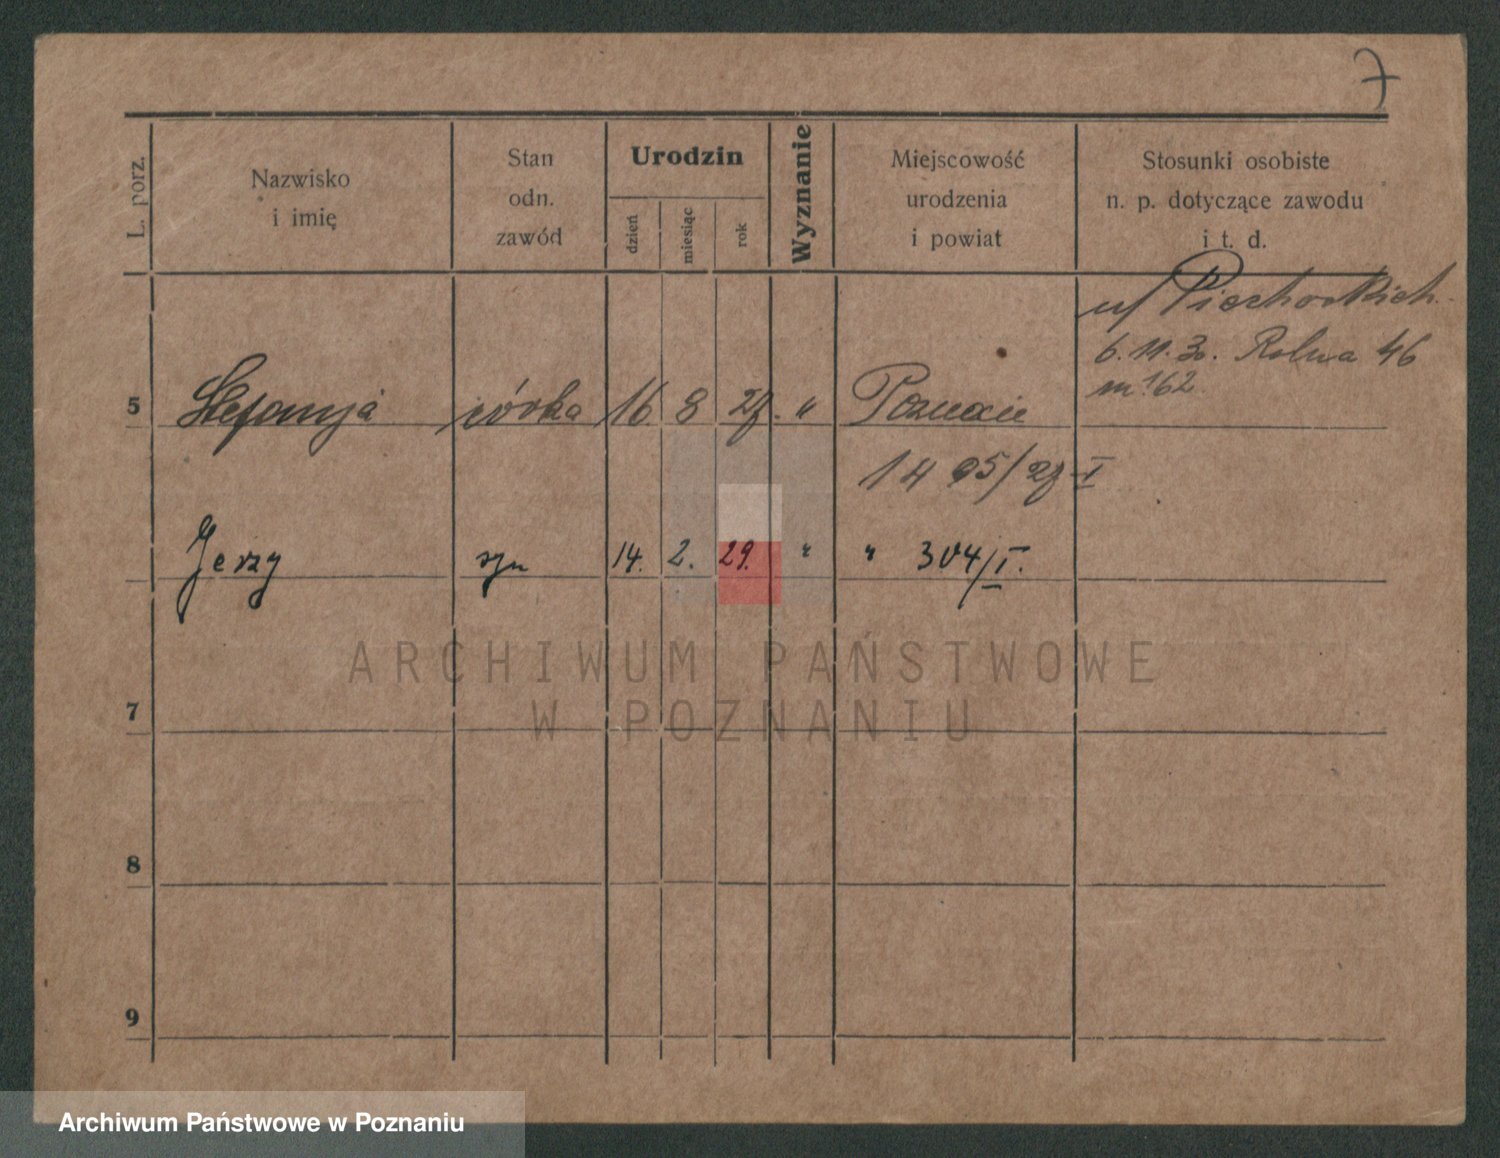 7
L. porz.
Nazwisko
i imię
Stan
odn.
zawód
Urodzin
dzień
miesiąc
rok
Wyznanie
Miejscowość
urodzenia
i powiat
Stosunki osobiste
n. p. dotyczące zawodu
i t. d.
u/ Piechockich
6.11.30. Rolna 46
m 162.
5 Stefanja córka 16 8 27. " Poznań
1495/27 I
Jerzy syn 14. 2. 29. " " 304/I.
ARCHIWUM PAŃSTWOWE
W POZNANIU
7
8
9
Archiwum Państwowe w Poznaniu